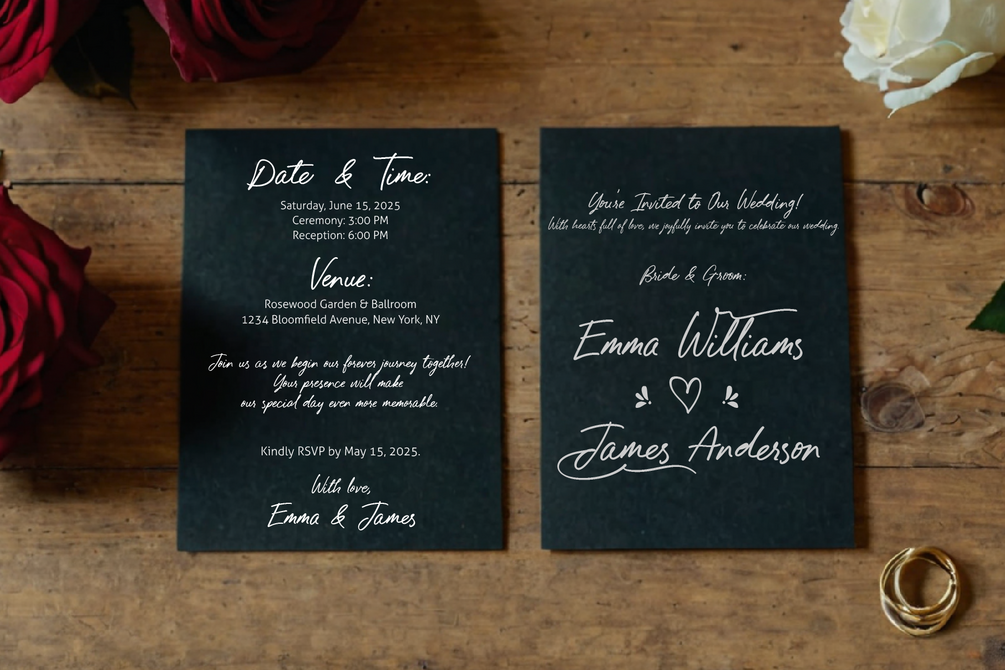 Date & Time:
Saturday, June 15, 2025
Ceremony: 3:00 PM
Reception: 6:00 PM
Venue:
Rosewood Garden & Ballroom
1234 Bloomfield Avenue, New York, NY
Join us as we begin our forever journey together!
Your presence will make
our special day even more memorable.
Kindly RSVP by May 15, 2025.
With love,
Emma & James
You're Invited to Our Wedding!
With hearts full of love, we joyfully invite you to celebrate our wedding.
Bride & Groom:
Emma Williams
James Anderson